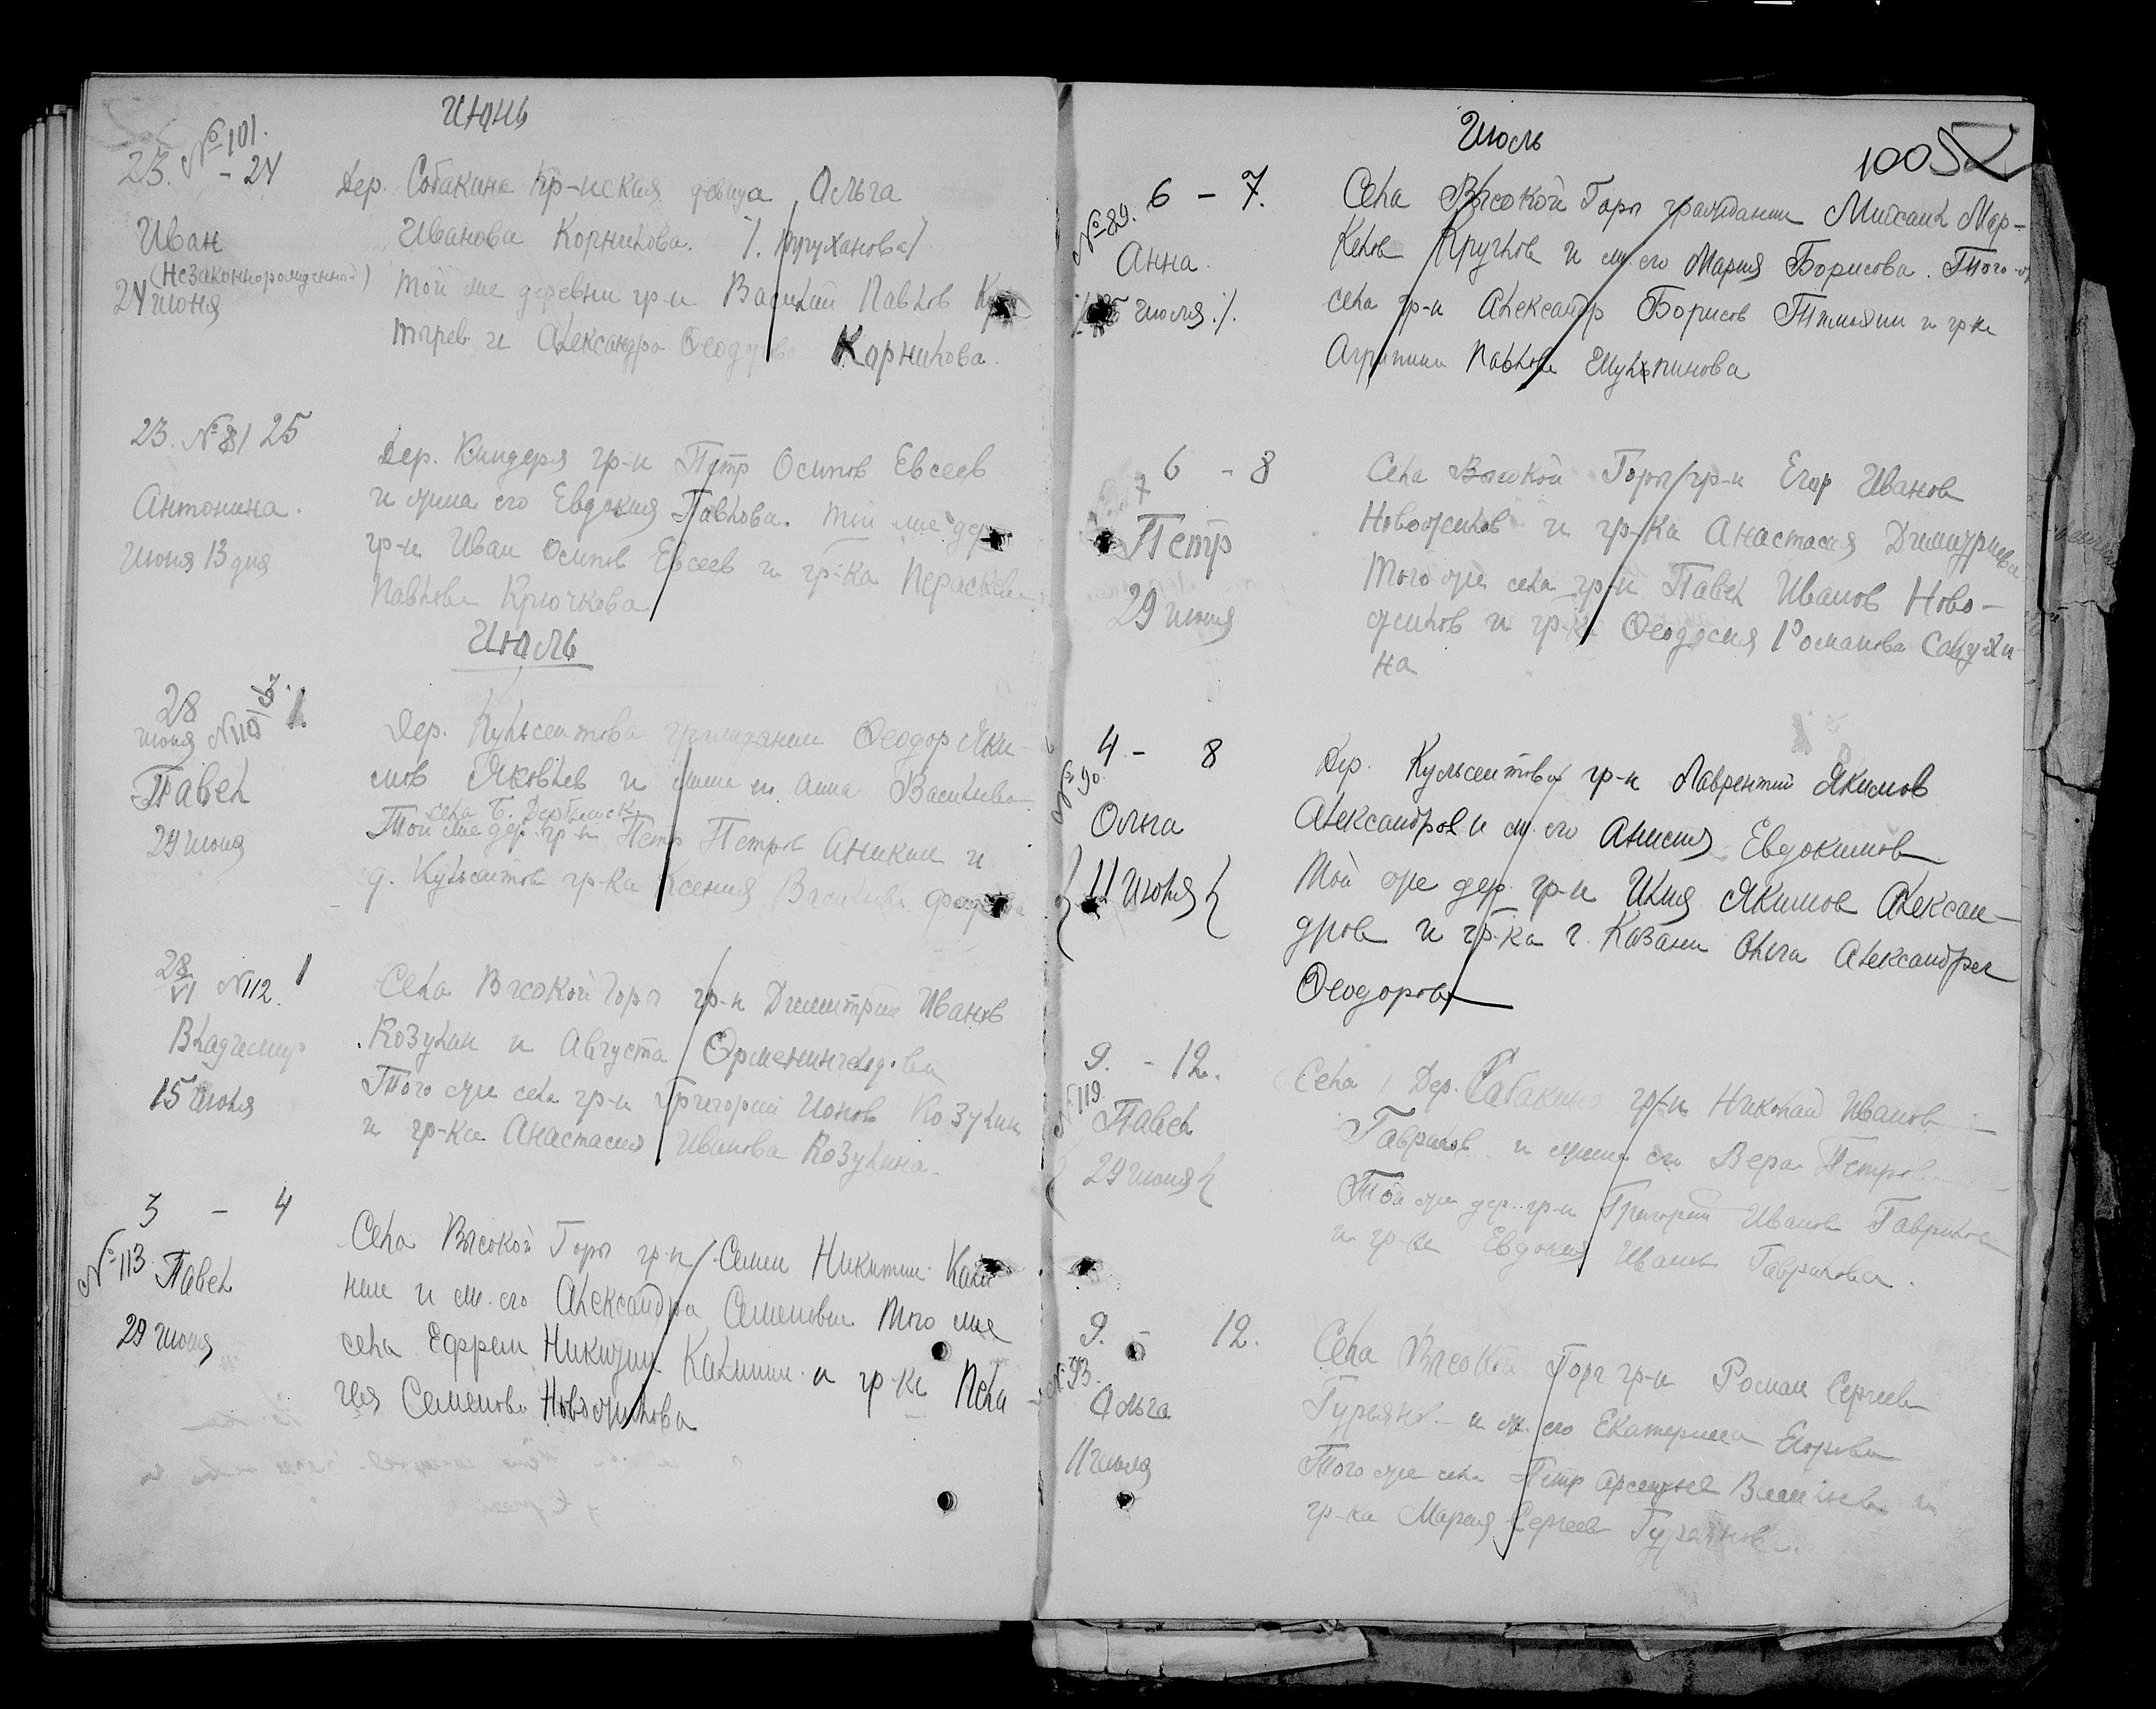 Июнь
№ 101.
23. - 24
Дер. Собакина кр-нския девица Ольга
Иван
Иванова Корнилова.
(незаконнорожденный)
24 июня
Той же деревни гр-н Василий Павлов
и Александра Феодорова Корнилова.
23. № 81 25
Дер. Киндеря гр-н Петр Осипов Евсеев
и жена его Евдокия Павлова. Той же дер
Антонина.
гр-н Иван Осипов Евсеев и гр-ка Параскева
Июня 13 дня
Павлова Крючкова
Июль
28 июня №110 1.
Дер. Кульсеитова гражданин Феодор Яки-
мов Яковлев и жена его Анна Васильева
Павел
села Б. Дербышск
Той же дер. гр-н Петр Петров Аникин и
29 июня
д. Кульсеитова гр-ка Ксения Васильева
28/VI №112. 1
Села Высокой Горы гр-н Димитрий Иванов
Владимир
Козулин и Августа
15 июля
Того же села гр-н Григорий Ионов Козулин
и гр-ка Анастасия Иванова Козулина.
3 - 4
Села Высокой Горы гр-н Семен Никитин Кали
№ 113 Павел
нин и ж. его Александра Семеновна Того же
29 июня
села Ефрем Никитин Калинин и гр-ка Пела-
гия Семенова Новожилова
Июль
100
6 - 7.
Села Высокой Горы гражданин Михаил Мар-
№ 89.
келов Круглов и ж. его Мария Борисова. Того ж
Анна.
села гр-н Александр Борисов и гр-ка
июля
Агрипина Павлова
6 - 8
7
Села Высокой Горы гр-н Егор Иванов
Петр
Новожилов и гр-ка Анастасия Димитриева
Того же села гр-н Павел Иванов Ново-
29 июня
жилов и гр-ка Феодосия Романова Савухи
на
4 - 8
Дер. Кульсеитова гр-н Лаврентий Якимов
№ 90.
Ольга
Александров и ж. его Анисия Евдокимов
11 июля
Той же дер. гр-н Илия Якимов Алексан-
дров и гр-ка г. Казани Ольга Александров
Феодоров
9. - 12.
Села Дер. Собакина гр-н Николай Иванов
№119
Павел
Гаврилов и жена его Вера Петров
29 июня
Той же дер. гр-н Григорий Иванов Гаврилов
и гр-ка Евдокия Иванов Гаврилова.
9. - 12.
Села Высокой Горы гр-н Роман Сергеев
№ 93.
Ольга
Гурьянов и ж. его Екатерина Егорова
11 июля
Того же села Петр Арсеньев Васильев и
гр-ка Мария Сергеев Гурьянов